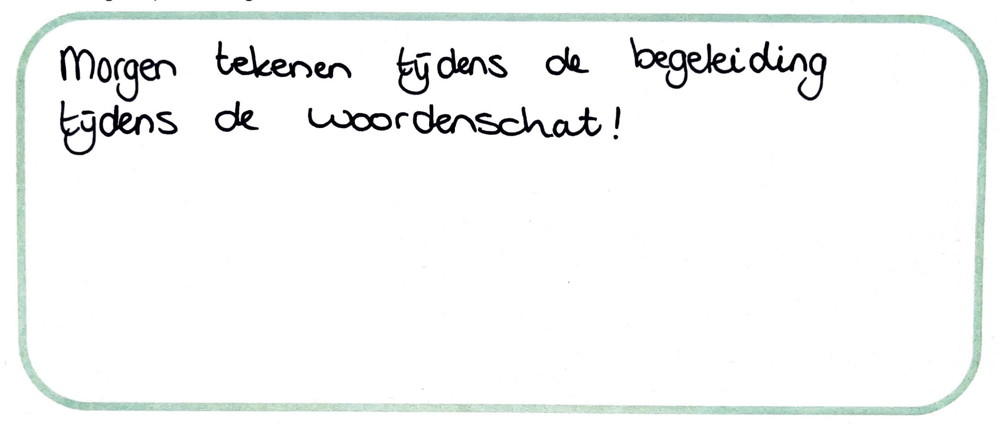 Morgen tekenen tijdens de begeleiding
tijdens de woordenschat!